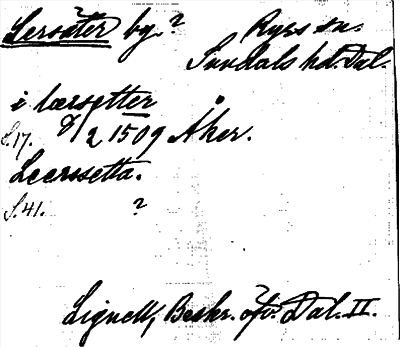 Lersäter by.?
Ryrs sn.
Sundals hd. Dal.
i lærsetter
S.17. 8/2 1509 Åker.
Leerssetta.
S.41. ?
Lignell, Beskr. öfv. Dal. II.